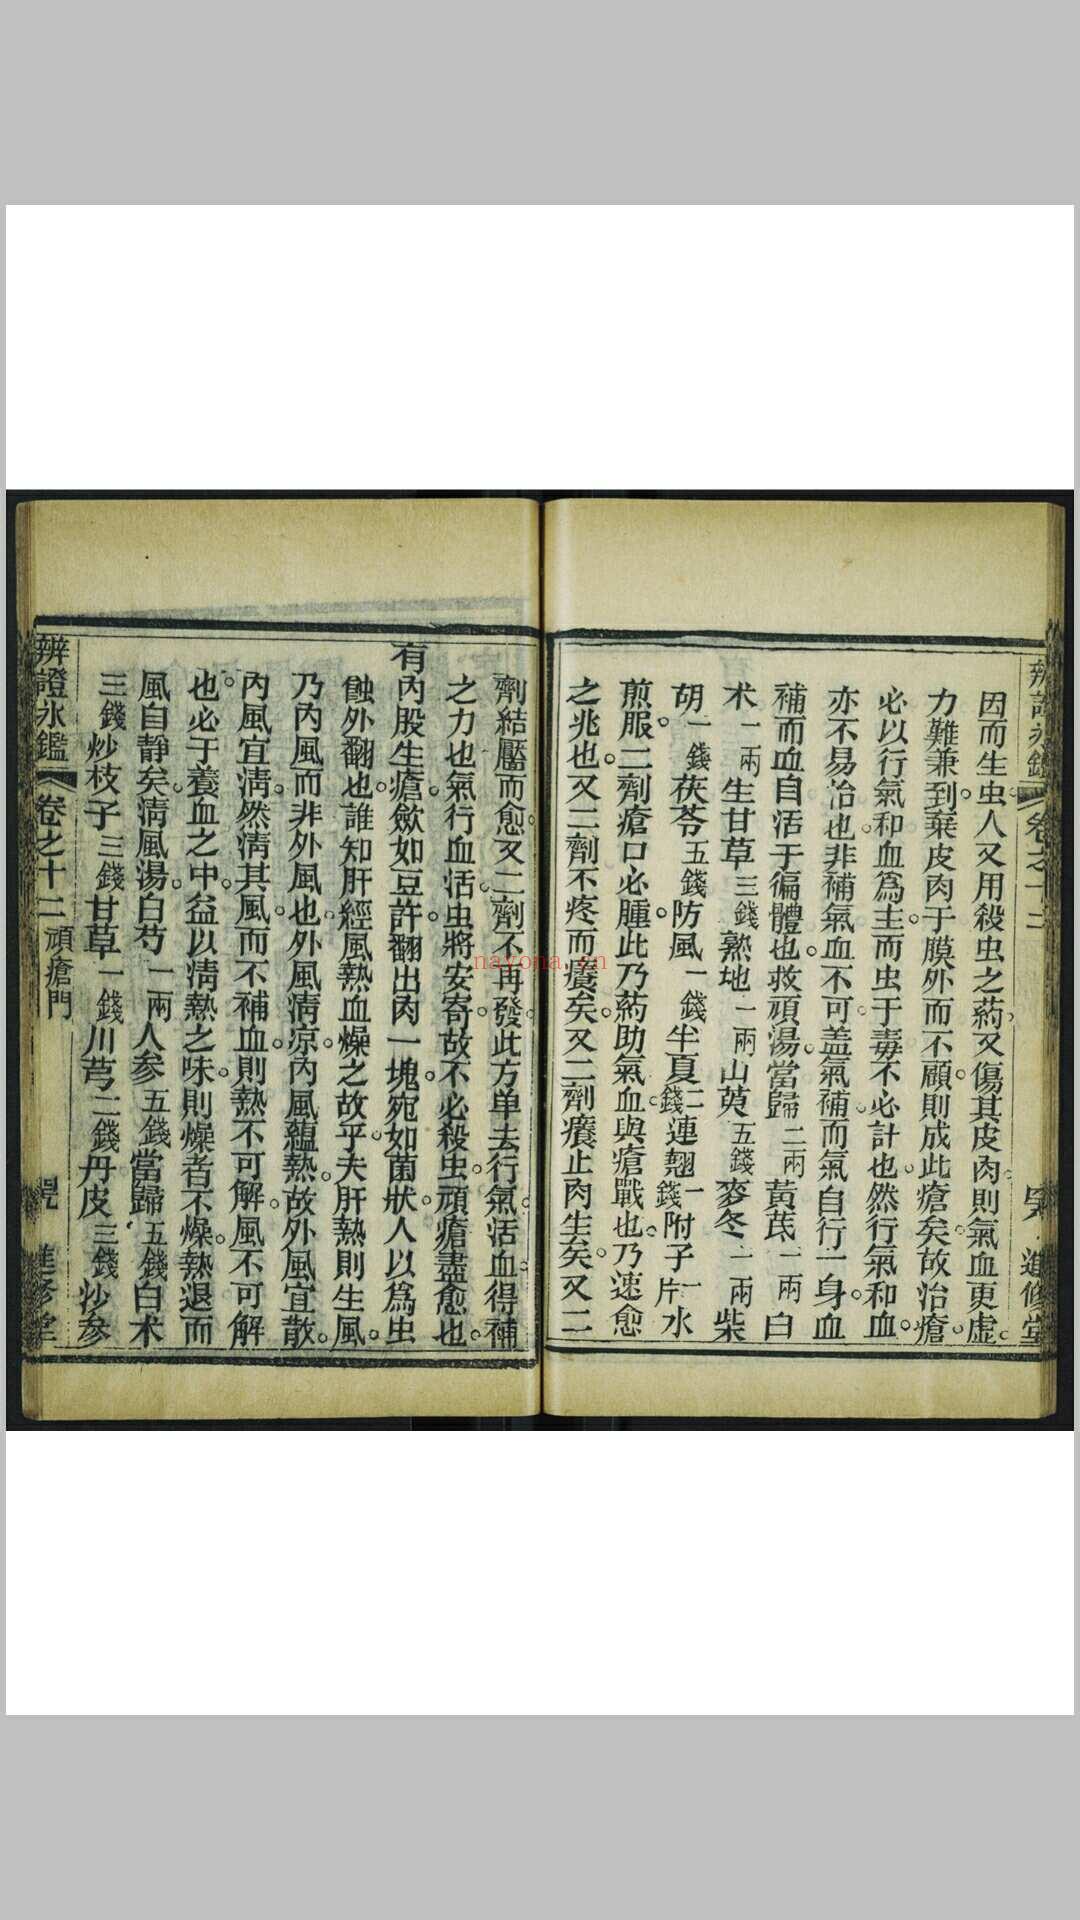 因而生虫人又用殺虫之药又傷其皮肉則氣血更虛
力難兼到棄皮肉于膜外而不顧則成此瘡矣故治瘡
必以行氣和血爲主而虫于毒不必計也然行氣和血
亦不易治也非補氣血不可盖氣補而氣自行一身血
補而血自活于徧體也救頑湯當歸二兩黃芪一兩白
术一兩生甘草三錢熟地一兩山萸五錢麥冬一兩柴
胡一錢茯苓五錢防風一錢半夏二錢連翹一錢附子一片水
煎服二劑瘡口必腫此乃药助氣血與瘡戰也乃速愈
之兆也又二劑不疼而癢矣又二劑癢止肉生矣又二
劑結靨而愈又二劑不再發此方单去行氣活血得補
之力也氣行血活虫將安寄故不必殺虫頑瘡盡愈也
有內股生瘡歛如豆許翻出肉一塊宛如菌狀人以爲虫
蝕外翻也誰知肝經風熱血燥之故乎夫肝熱則生風
乃內風而非外風也外風清凉內風蘊熱故外風宜散
內風宜清然清其風而不補血則熱不可解風不可解
也必于養血之中益以清熱之味則燥者不燥熱退而
風自靜矣清風湯白芍一兩人參五錢當歸五錢白术
三錢炒枝子三錢甘草一錢川芎二錢丹皮三錢沙参
辨證氷鑑 卷之十二 頑瘡門 進修堂
nayona.cn